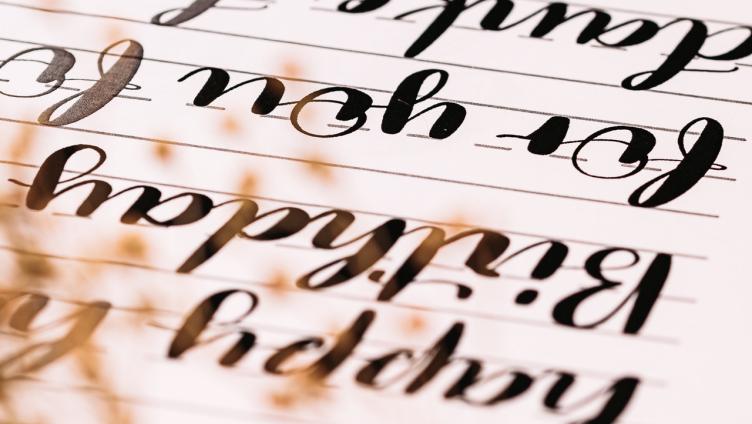 happy
Birthday
for you
danke